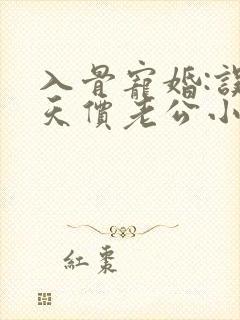 入骨寵婚:誤
天價老公小
紅棗